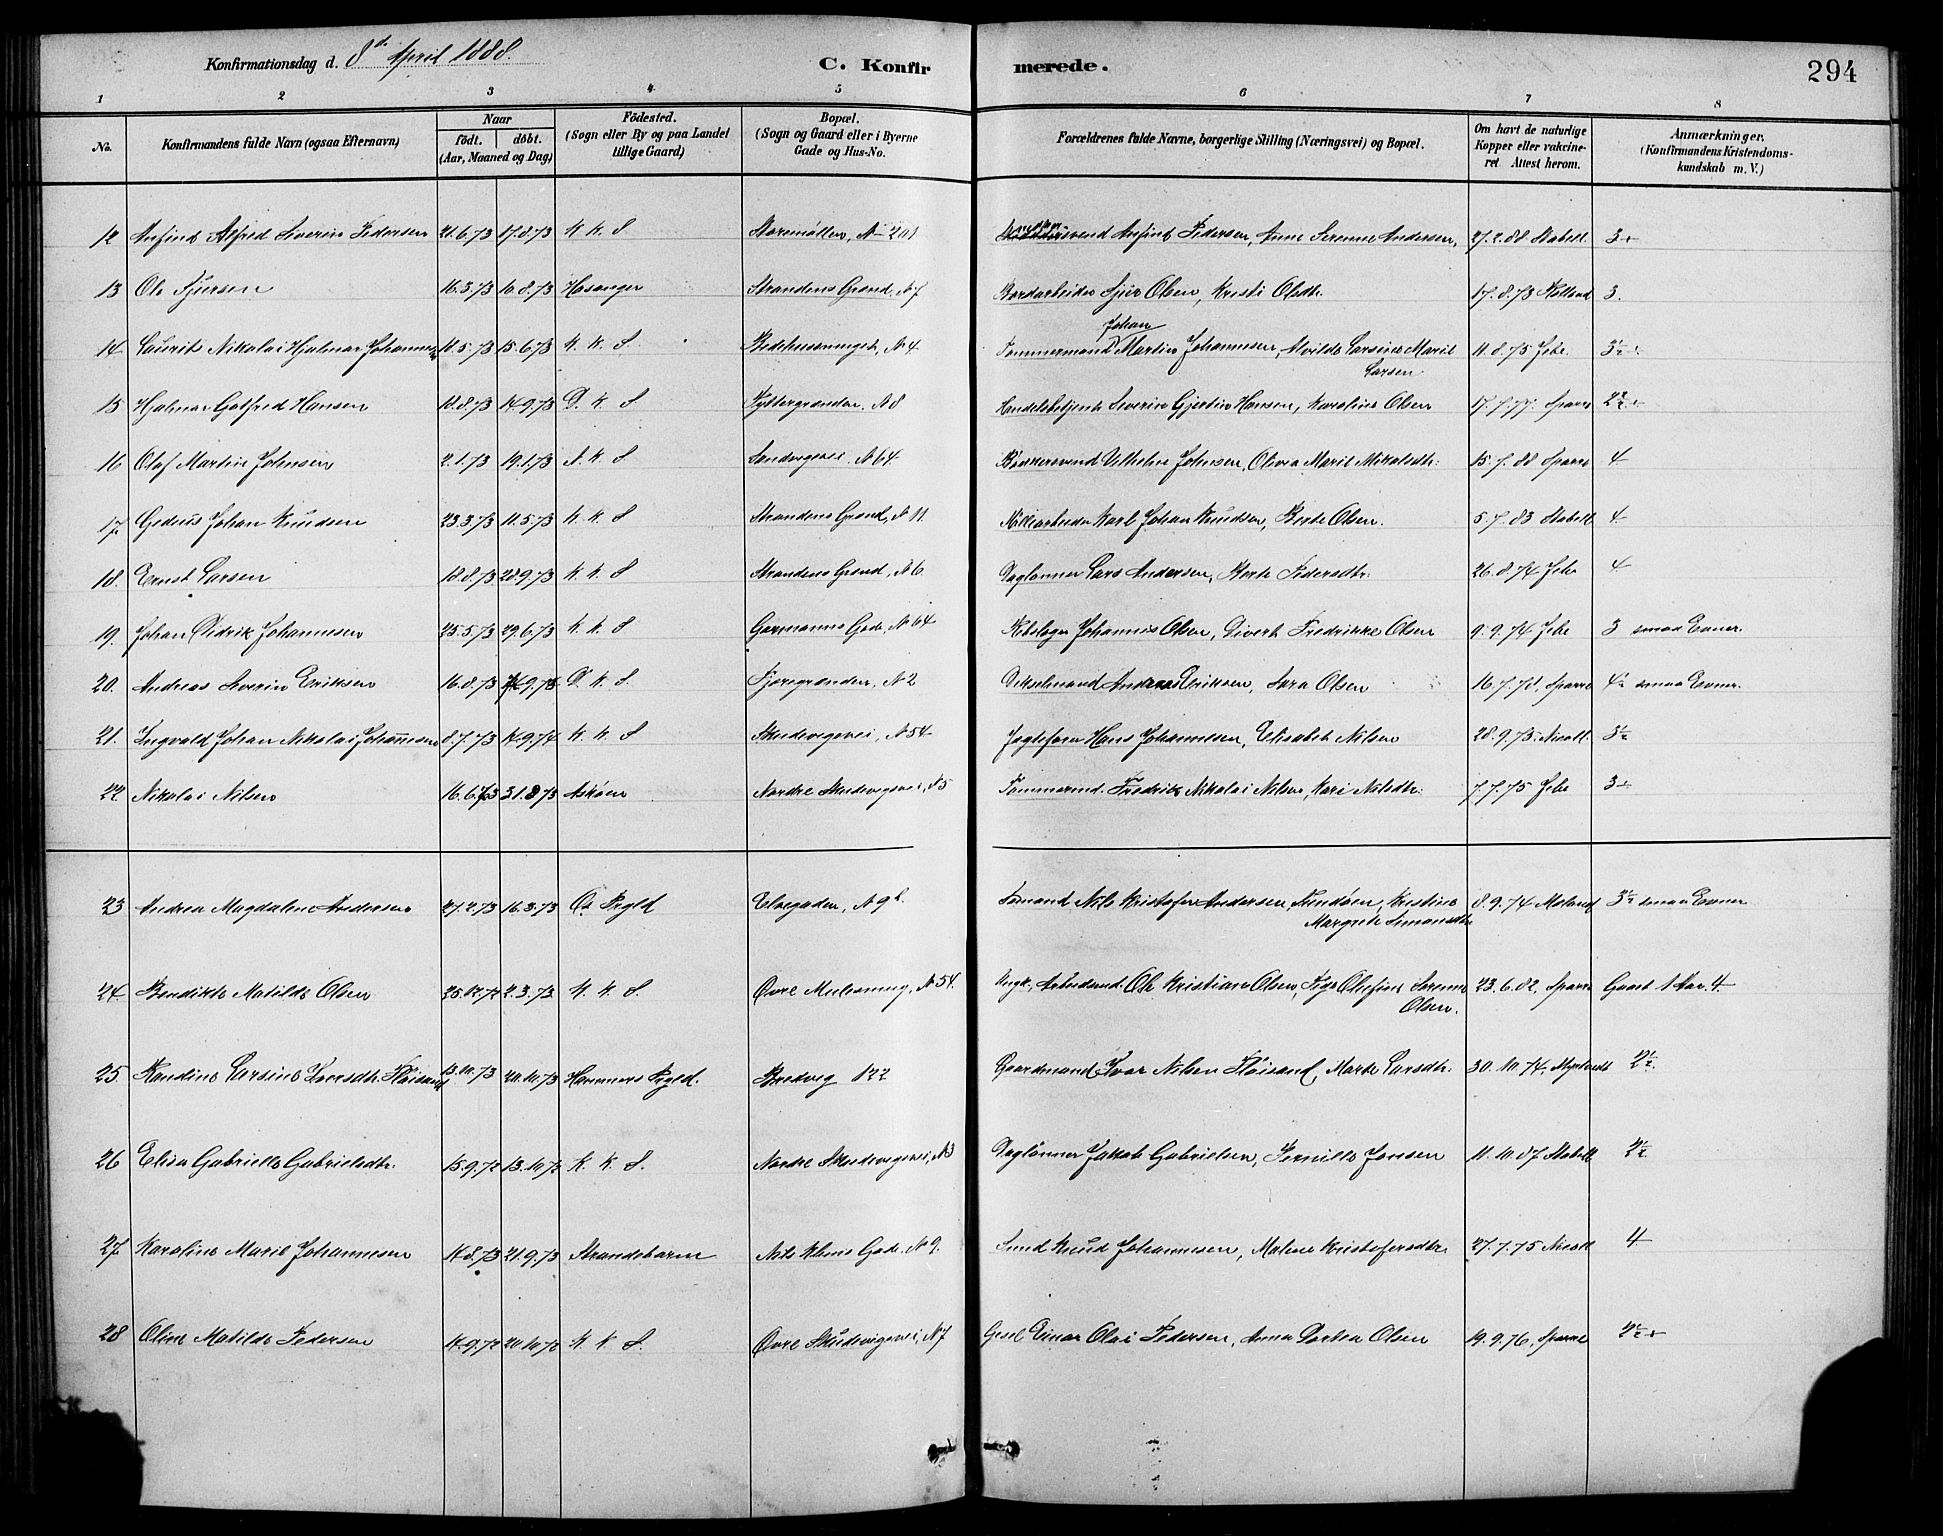 Konfirmationsdag d. 8de April 1888.
C. Konfir merede.
294
1 2 3 4 5 6 7 8
No.
Konfirmandens fulde Navn (ogsaa Efternavn)
Naar
födt. döbt.
(Aar, Maaned og Dag)
Födested.
(Sogn eller By og paa Landet
tillige Gaard)
Bopæl.
(Sogn og Gaard eller i Byerne
Gade og Hus-No.
Forældrenes fulde Navne, borgerlige Stilling (Næringsvei) og Bopæl.
Om havt de naturlige
Kopper eller vakcine-
ret Attest herom.
Anmærkninger.
(Konfirmandens Kristendoms-
kundskab m. V.)
12 Anfind Alfred Severin Pedersen 21.6.73 17.8.73 K. K. S Storemøllen, N 201 Anfind Pedersen, Anne Serenne Andersen, 27.2.88 Stabell 3+
13 Ole Sjursen 16.3.73 10.8.73 Hosanger Strandens Grænd, N 7 Bordarbeider Sjur Olsen, Kristi Olsdtr. 17.8.73 3.
14 Laurits Nikolai Hjalmar Johannesen 11.5.73 15.6.73 K. K. S Bedehussmuget, N 4. Tømmermand Johan Martin Johannesen, Alvilde Larsine Marie Larsen 11.8.75 Jebe. 3½+
15 Hjalmar Gotfred Hansen 18.8.73 14.9.73 D. K. S Pyttergrænden, N 8 Handelsbetjent Severin Gjertin Hansen, Karoline Olsen 17.7.77. Sparre 2½+
16 Olaf Martin Johnsen 2.1.73 19.1.73 N. K. S Sandvigsvei, N 64. Bødkersvend Vilhelm Johnsen, Olivia Marie Nikolsdtr. 15.7.88 Sparre 4
17. Gedeus Johan Knudsen 23.3.73 11.5.73 K. K. S Strandens Grænd, N 11. Karl Johan Knudsen, Berte Olsen. 5.7.83 Stabell 4
18. Ernst Larsen 18.8.73 28.9.73 K. K. S Strandens Grænd, N 6 Daglønner Lars Andersen, Berte Pedersdtr. 26.8.74 Jebe 4
19. Johan Didrik Johannesen 25.5.73 29.6.73 K. K. S Garmanns Gade, N 64 Rebslager Johannes Olsen, Divert Fredrikke Olsen 9.9.74 Jebe 3 smaa Evner.
20. Andreas Severin Eriksen 16.8.73 14.9.73 D. K. S. Fjæregrænden, N 2 Andreas Eriksen, Sara Olsen 16.7.78, Sparre 4½ smaa Evner.
21. Ingvald Johan Nikolai Johannesen 8.7.73 14.9.74 K. K. S Skudevigsvei, N 54 Jagtefører Hans Johannesen, Elisabet Nilsen 28.9.73. Nicoll. 3½
22 Nikolai Nilsen 16.6.73 31.8.73 Askøen Nordre Skudevigsvei, N 5 Tømmermd. Fredrik Nikolai Nilsen, Kari Nilsdtr. 7.7.75 Jebe 3+
23 Andrea Magdalene Andersen 27.2.73 16.3.73 Os Prgld Elvegaden, N 9b. Nils Kristofer Andersen, Kristine Margrete Simonsdtr. 8.9.74 3½ smaa Evner
24 Bendikte Matilde Olsen 25.12.72 2.3.73. K. K. S. Øvre Mulesmug, N 54. Ungk., Arbeidsmd. Ole Kristian Olsen, Pige Olefine Serenne Olsen. 23.6.82, Sparre Gaaet 1 Aar. 4
25. Randine Larsine Iversdtr. Fløisand 13.10.73 20.10.73 Hammers Prgld. Bredvig 122 Gaardmand Ivar Nilsen Fløisand, Marte Larsdtr. 30.10.74, 2½.
26 Elisa Gabrielle Gabrielsdtr. 15.9.72 13.10.72 K. K. S. Nordre Skudevigsvei, N 3 Daglønner Jakob Gabrielsen, Pernille Jonsen 11.10.87 Stabell 2½
27 Karoline Marie Johannesen 14.8.73 21.9.73 Strandebarm Nils Klims Gade, N 9. Smed Knud Johannesen, Malene Kristofersdtr. 27.7.75 Nicoll 4
28 Oline Matilde Pedersen 14.9.72 20.10.72 K. K. S. Øvre Skudevigsvei, N 7 Gesel Einar Olai Pedersen, Anna Dortea Olsen 19.9.76, Sparre 2½+